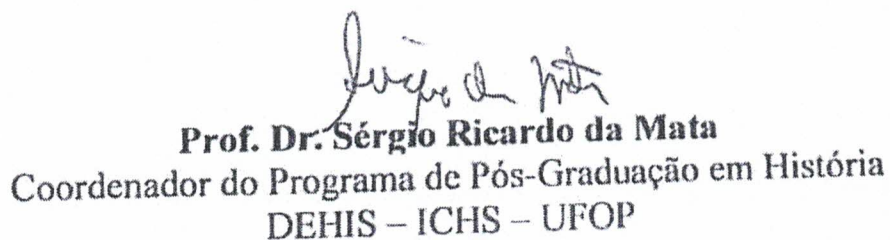 Sérgio da Mata
Prof. Dr. Sérgio Ricardo da Mata
Coordenador do Programa de Pós-Graduação em História
DEHIS – ICHS – UFOP